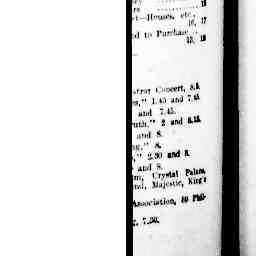 15
et—Houses, etc.,
16, 17
ed to Purchase ..
15, 18
Concert, 8.5.
," 1.45 and 7.45.
and 7.45.
uth," 2 and 8.15.
and 8.
," 8.
," 2.30 and 8.
and 8.
Crystal Palace,
Majestic, King's
Association, 89 Phil-
7.30.